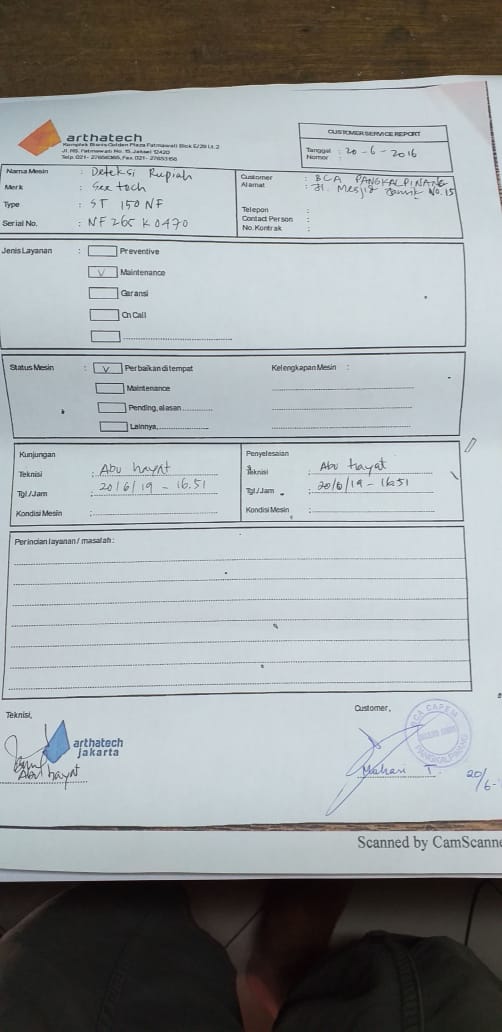 arthatech
Komplek Bisnis Golden Plaza Fatmawati Blok E/29 Lt. 2
Jl. RS. Fatmawati No. 15, Jaksel 12420
Telp. 021 - 27656365, Fax. 021 - 27653156
CUSTOMER SERVICE REPORT
Tanggal : 20 - 6 - 2016
Nomor :
Nama Mesin : Deteksi Rupiah
Merk :
Type : ST 150 NF
Serial No. : NF 265 K 0470
Customer : BCA PANGKALPINANG
Alamat : Jl. Mesjid Jamik No. 15
Telepon :
Contact Person :
No. Kontrak :
Jenis Layanan : Preventive
V Maintenance
Garansi
On Call
Status Mesin : V Perbaikan ditempat
Maintenance
Pending, alasan
Lainnya,
Kelengkapan Mesin :
Kunjungan
Teknisi : Abu hayat
Tgl / Jam : 20/6/19 - 16.51
Kondisi Mesin :
Penyelesaian
Teknisi : Abu hayat
Tgl / Jam : 20/6/19 - 16.51
Kondisi Mesin :
Perincian layanan / masalah :
Teknisi,
arthatech
jakarta
Abu hayat
Customer,
BCA CAPEM
PANGKALPINANG
T.
20/6-
Scanned by CamScanne